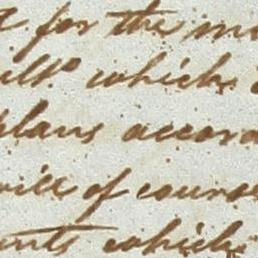 for the
which
plans accord
will of course
which